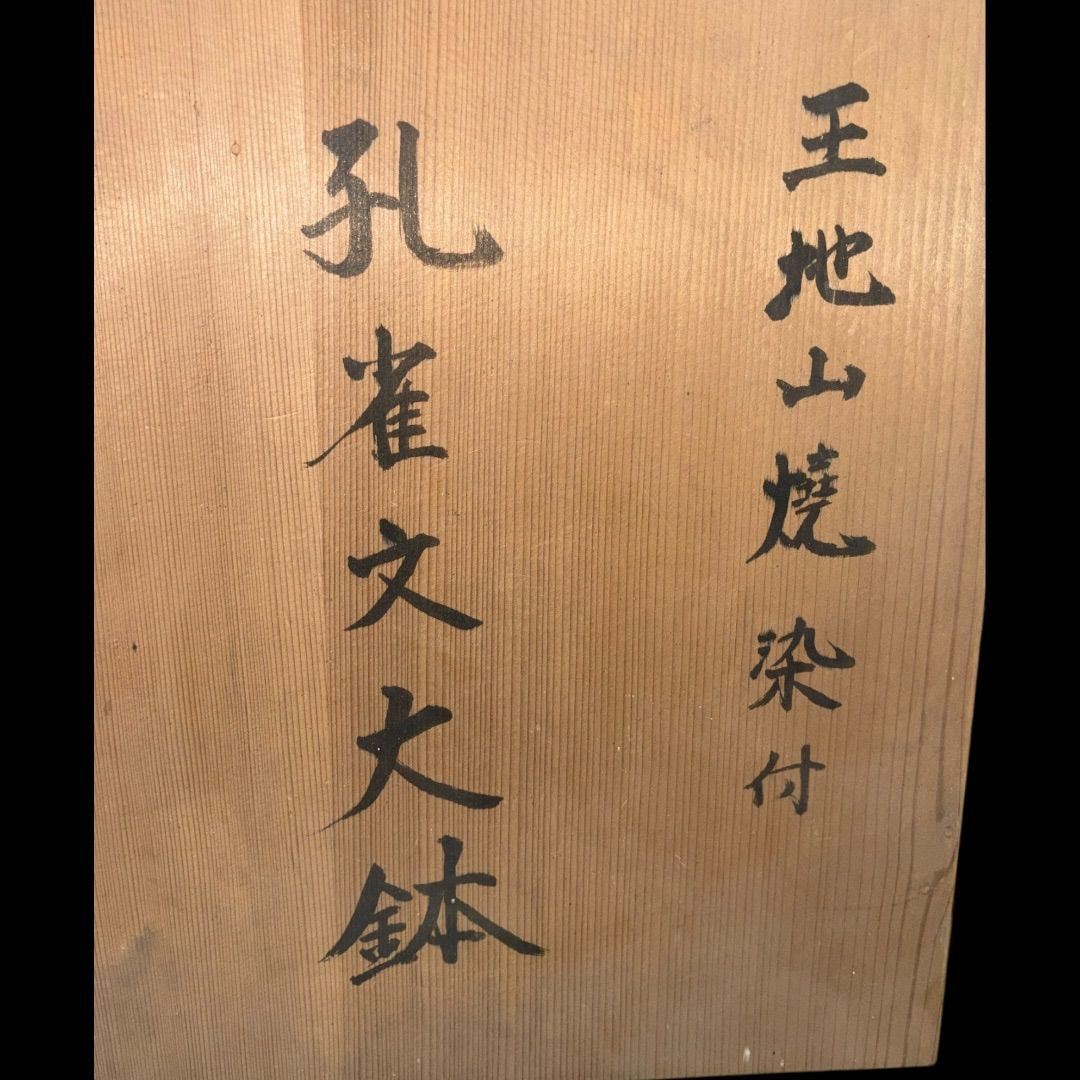 王地山燒染付
孔雀文大鉢